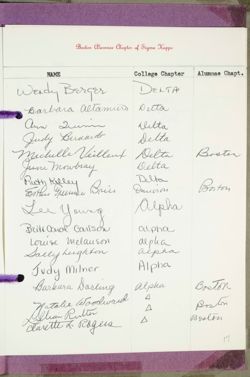 Boston Alumnae Chapter of Sigma Kappa
NAME College Chapter Alumnae Chapt.
Wendy Berger DELTA
Barbara Altamuro Delta
Ann Delta
Judy Bernardo Delta
Michelle Vaillant Delta Boston
June Mowbray Delta
Ruth Kelley Delta
Boston
Lee Young Alpha
Ruth Carlson alpha
Louise Melanson alpha
Sally Leighton alpha
Judy Milner Alpha
Barbara Darling alpha BOSTON
Natalie Woodward Δ Boston
Δ Boston
Rogers Δ